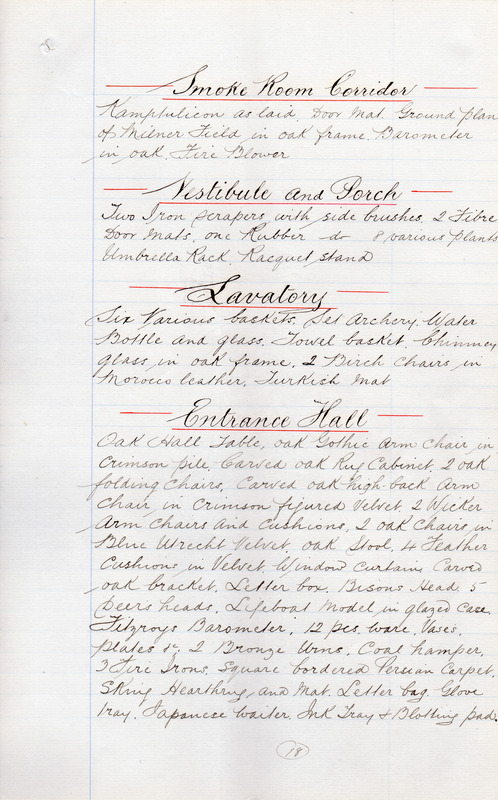 Smoke Room Corridor
Kamptulicon as laid. Door Mat. Ground plan
of Milner Field in oak frame. Barometer
in oak. Fire Blower
Vestibule and Porch
Two Iron scrapers with side brushes. 2 Fibre
Door Mats. one Rubber do 8 various plants
Umbrella Rack. Racquet stand
Lavatory
Six Various baskets. Set Archery. Water
Bottle and glass. Towel basket. Chimney
glass in oak frame. 2 Birch Chairs in
Morocco leather. Turkish Mat
Entrance Hall
Oak Hall Table, oak Gothic Arm Chair in
Crimson pile. Carved oak Rug Cabinet. 2 oak
folding Chairs. Carved oak high back Arm
Chair in Crimson figured Velvet. 2 Wicker
Arm Chairs and Cushions. 2 oak Chairs in
Blue Utrecht Velvet. oak Stool. 4 Feather
Cushions in Velvet. Window Curtain. Carved
oak bracket. Letter box. Bisons Head. 5
Deers heads. Lifeboat Model in glazed Case.
Fitzroys Barometer. 12 pcs. ware. Vases.
plates &c. 2 Bronze Urns. Coal hamper.
3 Fire Irons. Square bordered Persian Carpet.
Skin Hearthrug and Mat. Letter bag. Glove
Tray. Japanese Waiter. Ink Tray & Blotting pad.
78